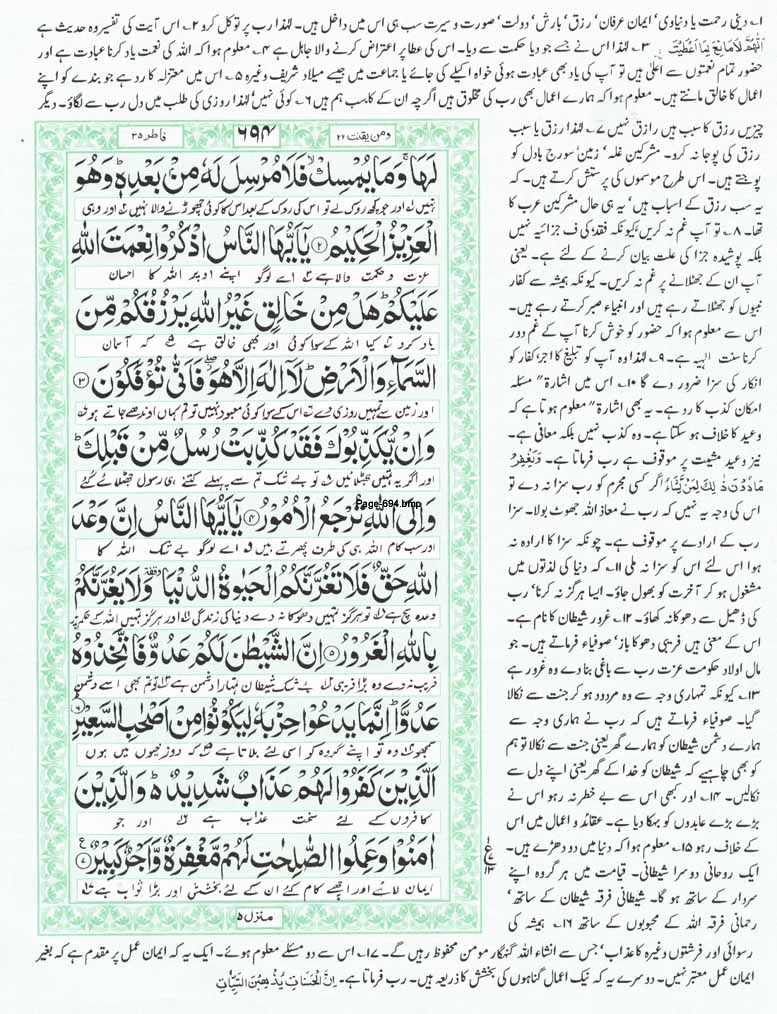 ۱۔ دینی رحمت یا دنیاوی‘ ایمان عرفان‘ رزق‘ بارش‘ دولت‘ صورت و سیرت سب ہی اس میں داخل ہیں۔ لہٰذا رب پر توکل کرو ۲۔ اس آیت کی تفسیر وہ حدیث ہے
اَللّٰھُمَّ لَامَانِعَ لِمَا اَعْطَیْتَ ۳۔ لہٰذا اس نے جسے جو دیا حکمت سے دیا۔ اس کی عطا پر اعتراض کرنے والا جاہل ہے ۴۔ معلوم ہوا کہ اللہ کی نعمت یاد کرنا عبادت ہے اور
حضور تمام نعمتوں سے اعلیٰ ہیں تو آپ کی یاد بھی عبادت ہوئی خواہ اکیلے کی جائے یا جماعت میں جیسے میلاد شریف وغیرہ ۵۔ اس میں معتزلہ کا رد ہے جو بندے کو اپنے
اعمال کا خالق مانتے ہیں۔ معلوم ہوا کہ ہمارے اعمال بھی رب کی مخلوق ہیں اگرچہ ان کے کاسب ہم ہیں ۶۔ کوئی نہیں‘ لہٰذا روزی کی طلب میں دل رب سے لگاؤ۔ دیگر
چیزیں رزق کا سبب ہیں رازق نہیں ۷۔ لہٰذا رزق یا سبب
رزق کی پوجا نہ کرو۔ مشرکین غلہ‘ زمین‘ سورج بادل کو
پوجتے ہیں۔ اس طرح موسموں کی پرستش کرتے ہیں۔ کہ
یہ سب رزق کے اسباب ہیں‘ یہ ہی حال مشرکین عرب کا
تھا۔ ۸۔ تو آپ غم نہ کریں‘ کیونکہ فقد کی ف جزائیہ نہیں
بلکہ پوشیدہ جزا کی علت بیان کرنے کے لئے ہے۔ یعنی
آپ ان کے جھٹلانے پر غم نہ کریں۔ کیونکہ ہمیشہ سے کفار
نبیوں کو جھٹلاتے رہے ہیں اور انبیاء صبر کرتے رہے ہیں۔
اس سے معلوم ہوا کہ حضور کو خوش کرنا آپ کے غم دور
کرنا سنت الٰہیہ ہے۔ ۹۔ لہٰذا وہ آپ کو تبلیغ کا اجر‘ کفار کو
انکار کی سزا ضرور دے گا ۱۰۔ اس میں اشارۃً مسئلہ
امکان کذب کا رد ہے۔ یہ بھی اشارۃً معلوم ہوتا ہے کہ
وعید کا خلاف ہو سکتا ہے۔ وہ کذب نہیں بلکہ معافی ہے۔
نیز وعید مشیت پر موقوف ہے رب فرماتا ہے۔ وَیَغْفِرُ
مَادُوْنَ ذٰلِکَ لِمَنْ یَّشَآءُ اگر کسی مجرم کو رب سزا نہ دے تو
اس کی وجہ یہ نہیں کہ رب نے معاذ اللہ جھوٹ بولا۔ سزا
رب کے ارادے پر موقوف ہے۔ چونکہ سزا کا ارادہ نہ
ہوا اس لئے اس کو سزا نہ ملی ۱۱۔ کہ دنیا کی لذتوں میں
مشغول ہو کر آخرت کو بھول جاؤ۔ ایسا ہرگز نہ کرنا‘ رب
کی ڈھیل سے دھوکا نہ کھاؤ۔ ۱۲۔ غرور شیطان کا نام ہے۔
اس کے معنی ہیں فریبی دھوکا باز‘ صوفیاء فرماتے ہیں۔ جو
مال اولاد حکومت عزت رب سے باغی بنا دے وہ غرور ہے
۱۳۔ کیونکہ تمہاری وجہ سے وہ مردود ہو کر جنت سے نکالا
گیا۔ صوفیاء فرماتے ہیں کہ رب نے ہماری وجہ سے
ہمارے دشمن شیطان کو ہمارے گھر یعنی جنت سے نکالا تو ہم
کو بھی چاہیے کہ شیطان کو خدا کے گھر یعنی اپنے دل سے
نکالیں۔ ۱۴۔ اور کبھی اس سے بے خطر نہ رہو اس نے
بڑے بڑے عابدوں کو بہکا دیا ہے۔ عقائد و اعمال میں اس
کے خلاف رہو ۱۵۔ معلوم ہوا کہ دنیا میں دو دھڑے ہیں۔
ایک روحانی دوسرا شیطانی۔ قیامت میں ہر گروہ اپنے
سردار کے ساتھ ہو گا۔ شیطانی فرقہ شیطان کے ساتھ‘
رحمانی فرقہ اللہ کے محبوبوں کے ساتھ ۱۶۔ ہمیشہ کی
ومن یقنت ۲۲ ۶۹۴ فاطر ۳۵
لَهَا ۚ وَمَا يُمْسِكْ ۙ فَلَا مُرْسِلَ لَهٗ مِنْۢ بَعْدِهٖ ؕ وَهُوَ
نہیں ۱ اور جو کچھ روک لے تو اس کی روک کے بعد اس کا کوئی چھوڑنے والا نہیں ۲ اور وہی
الْعَزِيْزُ الْحَكِيْمُ ۝۲ يٰۤاَيُّهَا النَّاسُ اذْكُرُوْا نِعْمَتَ اللّٰهِ
عزت و حکمت والا ہے ۳ اے لوگو اپنے اوپر اللہ کا احسان
عَلَيْكُمْ ؕ هَلْ مِنْ خَالِقٍ غَيْرُ اللّٰهِ يَرْزُقُكُمْ مِّنَ
یاد کرو ۴ کیا اللہ کے سوا کوئی اور بھی خالق ہے ۵ کہ آسمان
السَّمَآءِ وَالْاَرْضِ ؕ لَاۤ اِلٰهَ اِلَّا هُوَ ۖ فَاَنّٰى تُؤْفَكُوْنَ ۝۳
اور زمین سے تمہیں روزی دے ۶ اس کے سوا کوئی معبود نہیں تو تم کہاں اوندھے جاتے ہو ۷
وَاِنْ يُّكَذِّبُوْكَ فَقَدْ كُذِّبَتْ رُسُلٌ مِّنْ قَبْلِكَ ؕ
اور اگر یہ تمہیں جھٹلائیں تو بے شک تم سے پہلے کتنے ہی رسول جھٹلائے گئے
وَاِلَى اللّٰهِ تُرْجَعُ الْاُمُوْرُ ۝۴ يٰۤاَيُّهَا النَّاسُ اِنَّ وَعْدَ
Page-694.bmp
اور سب کام اللہ ہی کی طرف پھرتے ہیں ۹ اے لوگو بے شک اللہ کا
اللّٰهِ حَقٌّ فَلَا تَغُرَّنَّكُمُ الْحَيٰوةُ الدُّنْيَا ۥ وَلَا يَغُرَّنَّكُمْ
وعدہ سچ ہے ۱۰ تو ہرگز تمہیں دھوکا نہ دے دنیا کی زندگی ۱۱ اور ہرگز تمہیں اللہ کے حکم پر
بِاللّٰهِ الْغَرُوْرُ ۝۵ اِنَّ الشَّيْطٰنَ لَكُمْ عَدُوٌّ فَاتَّخِذُوْهُ
فریب نہ دے وہ بڑا فریبی ۱۲ بے شک شیطان تمہارا دشمن ہے ۱۳ تو تم بھی اسے دشمن
عَدُوًّا ؕ اِنَّمَا يَدْعُوْا حِزْبَهٗ لِيَكُوْنُوْا مِنْ اَصْحٰبِ السَّعِيْرِ ۝۶
سمجھو ۱۴ وہ تو اپنے گروہ کو اسی لئے بلاتا ہے ۱۵ کہ دوزخیوں میں ہوں
اَلَّذِيْنَ كَفَرُوْا لَهُمْ عَذَابٌ شَدِيْدٌ ؕ۬ وَالَّذِيْنَ
کافروں کے لئے سخت عذاب ہے ۱۶ اور جو
اٰمَنُوْا وَعَمِلُوا الصّٰلِحٰتِ لَهُمْ مَّغْفِرَةٌ وَّاَجْرٌ كَبِيْرٌ ۝۷
ایمان لائے اور اچھے کام کئے ان کے لئے بخشش اور بڑا ثواب ہے ۱۷
منزل ۵
رسوائی اور فرشتوں وغیرہ کا عذاب‘ جس سے انشاء اللہ گنہگار مومن محفوظ رہیں گے۔ ۱۷۔ اس سے دو مسئلے معلوم ہوئے۔ ایک یہ کہ ایمان عمل پر مقدم ہے کہ بغیر
ایمان عمل معتبر نہیں۔ دوسرے یہ کہ نیک اعمال گناہوں کی بخشش کا ذریعہ ہیں۔ رب فرماتا ہے۔ اِنَّ الْحَسَنَاتِ یُذْھِبْنَ السَّیِّاٰتِ